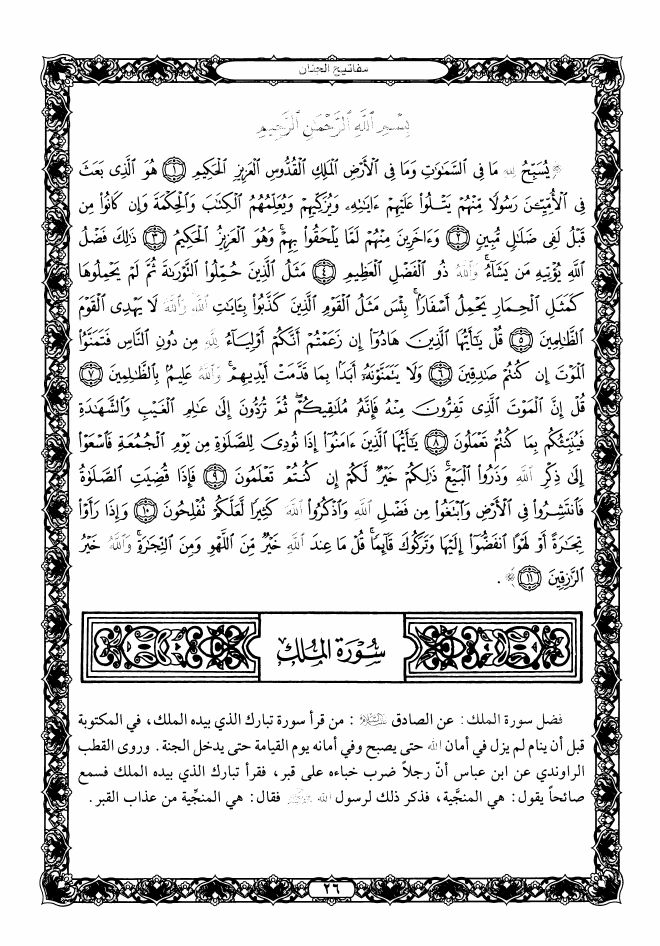 مفاتيح الجنان
بِسْمِ ٱللَّهِ ٱلرَّحْمَٰنِ ٱلرَّحِيمِ
﴿يُسَبِّحُ لِلَّهِ مَا فِى ٱلسَّمَٰوَٰتِ وَمَا فِى ٱلْأَرْضِ ٱلْمَلِكِ ٱلْقُدُّوسِ ٱلْعَزِيزِ ٱلْحَكِيمِ ۝١ هُوَ ٱلَّذِى بَعَثَ
فِى ٱلْأُمِّيِّـۧنَ رَسُولًا مِّنْهُمْ يَتْلُوا۟ عَلَيْهِمْ ءَايَٰتِهِۦ وَيُزَكِّيهِمْ وَيُعَلِّمُهُمُ ٱلْكِتَٰبَ وَٱلْحِكْمَةَ وَإِن كَانُوا۟ مِن
قَبْلُ لَفِى ضَلَٰلٍ مُّبِينٍ ۝٢ وَءَاخَرِينَ مِنْهُمْ لَمَّا يَلْحَقُوا۟ بِهِمْ ۚ وَهُوَ ٱلْعَزِيزُ ٱلْحَكِيمُ ۝٣ ذَٰلِكَ فَضْلُ
ٱللَّهِ يُؤْتِيهِ مَن يَشَآءُ ۚ وَٱللَّهُ ذُو ٱلْفَضْلِ ٱلْعَظِيمِ ۝٤ مَثَلُ ٱلَّذِينَ حُمِّلُوا۟ ٱلتَّوْرَىٰةَ ثُمَّ لَمْ يَحْمِلُوهَا
كَمَثَلِ ٱلْحِمَارِ يَحْمِلُ أَسْفَارًۢا ۚ بِئْسَ مَثَلُ ٱلْقَوْمِ ٱلَّذِينَ كَذَّبُوا۟ بِـَٔايَٰتِ ٱللَّهِ ۚ وَٱللَّهُ لَا يَهْدِى ٱلْقَوْمَ
ٱلظَّٰلِمِينَ ۝٥ قُلْ يَٰٓأَيُّهَا ٱلَّذِينَ هَادُوٓا۟ إِن زَعَمْتُمْ أَنَّكُمْ أَوْلِيَآءُ لِلَّهِ مِن دُونِ ٱلنَّاسِ فَتَمَنَّوُا۟
ٱلْمَوْتَ إِن كُنتُمْ صَٰدِقِينَ ۝٦ وَلَا يَتَمَنَّوْنَهُۥٓ أَبَدًۢا بِمَا قَدَّمَتْ أَيْدِيهِمْ ۚ وَٱللَّهُ عَلِيمٌۢ بِٱلظَّٰلِمِينَ ۝٧
قُلْ إِنَّ ٱلْمَوْتَ ٱلَّذِى تَفِرُّونَ مِنْهُ فَإِنَّهُۥ مُلَٰقِيكُمْ ۖ ثُمَّ تُرَدُّونَ إِلَىٰ عَٰلِمِ ٱلْغَيْبِ وَٱلشَّهَٰدَةِ
فَيُنَبِّئُكُم بِمَا كُنتُمْ تَعْمَلُونَ ۝٨ يَٰٓأَيُّهَا ٱلَّذِينَ ءَامَنُوٓا۟ إِذَا نُودِىَ لِلصَّلَوٰةِ مِن يَوْمِ ٱلْجُمُعَةِ فَٱسْعَوْا۟
إِلَىٰ ذِكْرِ ٱللَّهِ وَذَرُوا۟ ٱلْبَيْعَ ۚ ذَٰلِكُمْ خَيْرٌ لَّكُمْ إِن كُنتُمْ تَعْلَمُونَ ۝٩ فَإِذَا قُضِيَتِ ٱلصَّلَوٰةُ
فَٱنتَشِرُوا۟ فِى ٱلْأَرْضِ وَٱبْتَغُوا۟ مِن فَضْلِ ٱللَّهِ وَٱذْكُرُوا۟ ٱللَّهَ كَثِيرًا لَّعَلَّكُمْ تُفْلِحُونَ ۝١٠ وَإِذَا رَأَوْا۟
تِجَٰرَةً أَوْ لَهْوًا ٱنفَضُّوٓا۟ إِلَيْهَا وَتَرَكُوكَ قَآئِمًا ۚ قُلْ مَا عِندَ ٱللَّهِ خَيْرٌ مِّنَ ٱللَّهْوِ وَمِنَ ٱلتِّجَٰرَةِ ۚ وَٱللَّهُ خَيْرُ
ٱلرَّٰزِقِينَ ۝١١﴾ .
سُورَةُ المُلك
فضل سورة الملك: عن الصادق عليه السلام : من قرأ سورة تبارك الذي بيده الملك، في المكتوبة
قبل أن ينام لم يزل في أمان الله حتى يصبح وفي أمانه يوم القيامة حتى يدخل الجنة. وروى القطب
الراوندي عن ابن عباس أنّ رجلاً ضرب خباءه على قبر، فقرأ تبارك الذي بيده الملك فسمع
صائحاً يقول: هي المنجَّية، فذكر ذلك لرسول الله ﷺ فقال: هي المنجِّية من عذاب القبر.
٢٦